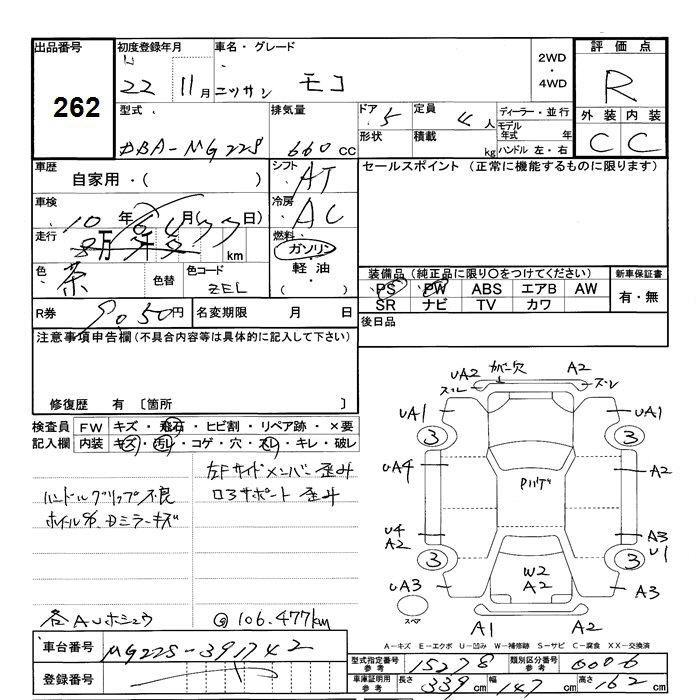 出品番号 初度登録年月 車名・グレード 2WD・4WD 評価点
262 H22 11月 ニッサン モコ R
型式 排気量 ドア 定員 ディーラー・並行 外装 内装
DBA-MG22S 660cc 5 4人 モデル年式 年 C C
形状 積載 kg ハンドル 左・右
車歴 シフト セールスポイント (正常に機能するものに限ります)
自家用・( ) AT
車検 冷房
10年 月 日 AC
走行 燃料
万 千 km ガソリン
色 色替 色コード 軽油・( )
茶 ZEL
装備品 (純正品に限り○をつけてください) 新車保証書
PS PW ABS エアB AW 有・無
SR ナビ TV カワ
R券 9050円 名変期限 月 日 後日品
注意事項申告欄 (不具合内容等は具体的に記入して下さい)
修復歴 有 〔箇所 〕
検査員 FW キズ・飛石・ヒビ割・リペア跡・×要
記入欄 内装 キズ・汚れ・コゲ・穴・スレ・キレ・破レ
左Fサイドメンバー歪み
ロアサポート 歪み
ハンドルグリップ不良
ホイルS/S、Dミラーキズ
各AUホシュウ ◎106.477km
UA2 カバー欠 A2
スレ スレ
UA1 UA1
3 3
UA4 Pハゲ A2
U4 A3
A2 U1
3 3
W2
A2
UA3 A3
スペア
A1 A2
A-キズ E-エクボ U-凹み W-補修跡 S-サビ C-腐食 XX-交換済
車台番号 MG22S-391742
登録番号
型式指定番号 参考 15278 類別区分番号 参考 0006
車庫証明用 参考 長さ 339cm 幅 147cm 高さ 162cm